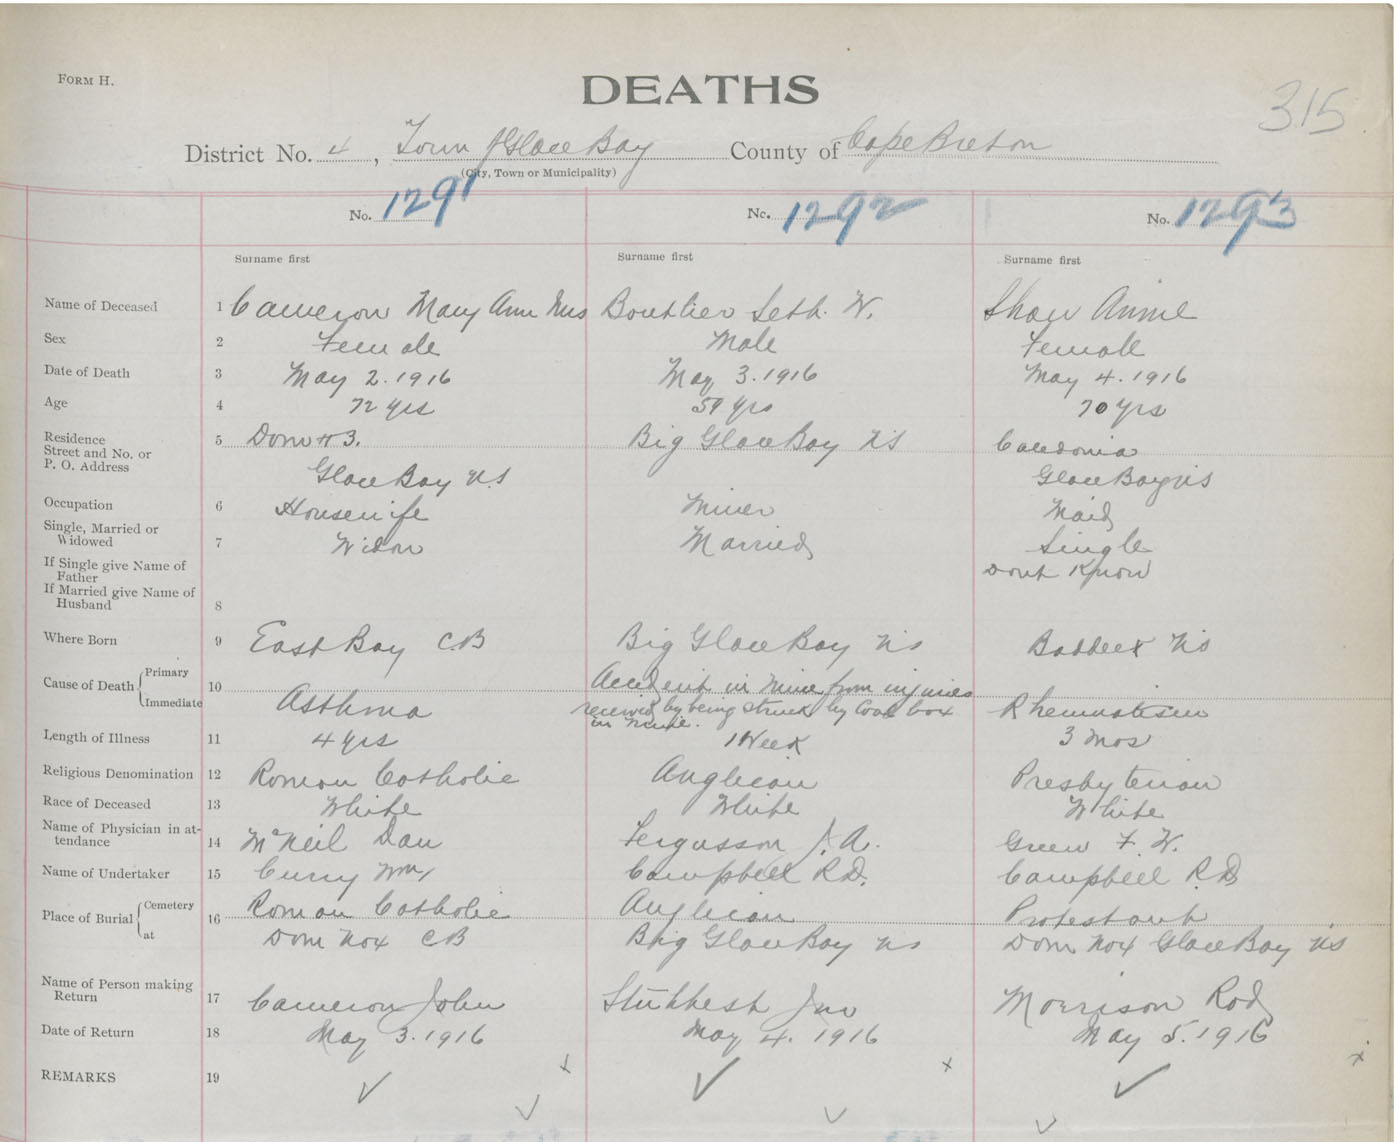 FORM H.
DEATHS
315
District No. 4, Town of Glace Bay County of Cape Breton
(City, Town or Municipality)
No. 1291 No. 1292 No. 1293
Surname first Surname first Surname first
Name of Deceased 1 Cameron Mary Ann Mrs Boutlier Seth. W. Shaw Annie
Sex 2 Female Male Female
Date of Death 3 May 2. 1916 May 3. 1916 May 4. 1916
Age 4 72 yrs 59 yrs 70 yrs
Residence 5 Dom #3. Big Glace Bay NS Caledonia
Street and No. or
P. O. Address Glace Bay NS Glace Bay NS
Occupation 6 Housewife Miner Maid
Single, Married or
Widowed 7 Widow Married Single
If Single give Name of
Father Dont Know
If Married give Name of
Husband 8
Where Born 9 East Bay CB Big Glace Bay NS Baddeck NS
Cause of Death Primary 10 Accident in mine from injuries
Immediate Asthma received by being struck by Coal box Rhematism
in mine.
Length of Illness 11 4 yrs 1 Week 3 Mos
Religious Denomination 12 Roman Catholic Anglican Presbyterian
Race of Deceased 13 White White White
Name of Physician in at-
tendance 14 McNeil Dan Fergusson J. A. Green F. W.
Name of Undertaker 15 Curry Wm Campbell R.D. Campbell R.D
Place of Burial Cemetery 16 Roman Catholic Anglican Protestant
at Dom No 4 CB Big Glace Bay NS Dom No 4 Glace Bay NS
Name of Person making
Return 17 Cameron John Stubbest Jno Morrison Rod
Date of Return 18 May 3. 1916 May 4. 1916 May 5. 1916
REMARKS 19